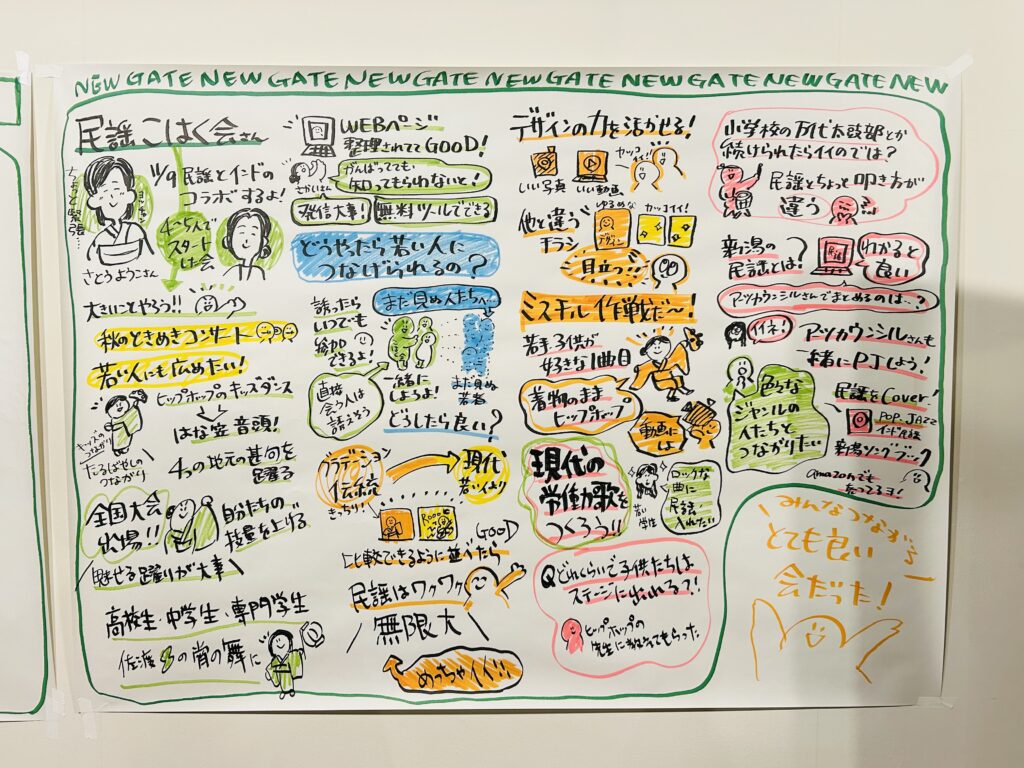 NEW GATE NEW GATE NEW GATE NEW GATE NEW GATE NEW GATE NEW
民謡こはく会さん
ちょっと緊張…
さとうようこさん
11/9 民謡とインドの
コラボするよ！
4〜5人で
スタート
した会
大きいことやろう!!
秋のときめきコンサート
若い人にも広めたい！
ヒップホップのキッズダンス
はな笠音頭！
キッズの
つながり
たるばやしの
つながり
4つの地元の甚句を
踊る
全国大会
出場!!
自分たちの
技量を上げる
魅せる踊りが大事
高校生・中学生・専門学生
佐渡の宵の舞に
WEBページ
整理されててGOOD！
がんばってても、
知ってもらわないと！
発信大事！
無料ツールでできる
どうやったら若い人に
つなげられるの？
誘ったら
いつでも
参加
できるよ！
まだ見ぬ人たちへ…
直接
会う人は
誘えそう
一緒に
しようよ！
まだ見ぬ
若者
どうしたら良い？
トラディション
伝統
きっちり！
現代
若い人より
GOOD
比較できるように並べたら
民謡はワクワク
無限大
めっちゃイイ!!
デザインの力を活かせる！
いい写真
いい動画
カッコイイ！
他と違う
チラシ
ゆるめな
デザイン
カッコイイ！
目立つ!!
ミスチル作戦だ〜！
若手 子供が
好きな1曲目
着物のまま
ヒップホップ。
動画に
しよ
現代の
労働歌を
つくろう!!
若い
学生
ロックな
曲に
民謡
入れたい
Qどれくらいで子供たちは
ステージに出れる？！
ヒップホップの
先生に教えてもらった
小学校の万代太鼓部とか
続けられたらイイのでは？
民謡とちょっと叩き方が
違う
新潟の
民謡とは？
わかると
良い
アーツカウンシルさんでまとめるのは…？
イイネ！
アーツカウンシルさんも
一緒にPJしよう！
色んな
ジャンルの
人たちと
つながりたい
民謡をCover！
POP、JAZZ
新潟ソングブック
amazonでも
売ってるヨ！
みんなつながる
とても良い
会だった！